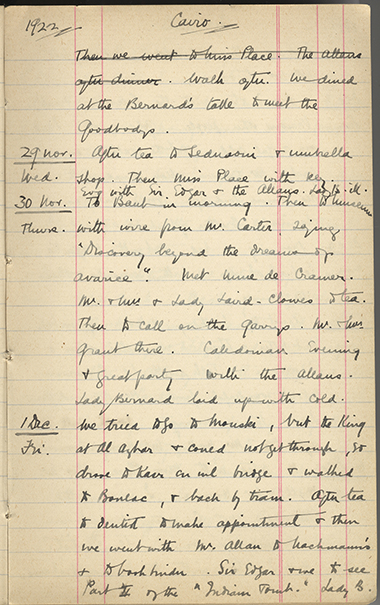 1922 Cairo.
Then we went to Miss Place. The Allans
after dinner. Walk after. We dined
at the Bernard's table to meet the
Goodbodys.
29 Nov. After tea to Sednaoui & umbrella
Wed. shop. Then Miss Place with key
Evg with Sir Edgar & the Allans. Lady B. ill.
30 Nov. To Bank in morning. Then to museum
Thurs. with wire from Mr. Carter saying
"Discovery beyond the dreams of
avarice". Met Mme de Cramer.
Mr. & Mrs & Lady Laird-Clowes to tea.
Then to call on the Garrys. Mr. & Mrs
Grant there. Caledonian Evening
& great party with the Allans.
Lady Bernard laid up with cold.
1 Dec. We tried to go to Mouski, but the King
Fri. at Al Azhar & could not get through, so
drove to Kasr en nil bridge & walked
to Boulac, & back by tram. After tea
to dentist to make appointment & then
we went with Mr. Allan to Hachmann's
& to bookbinder. Sir Edgar & we to see
Part II of the "Indian Tomb". Lady B.